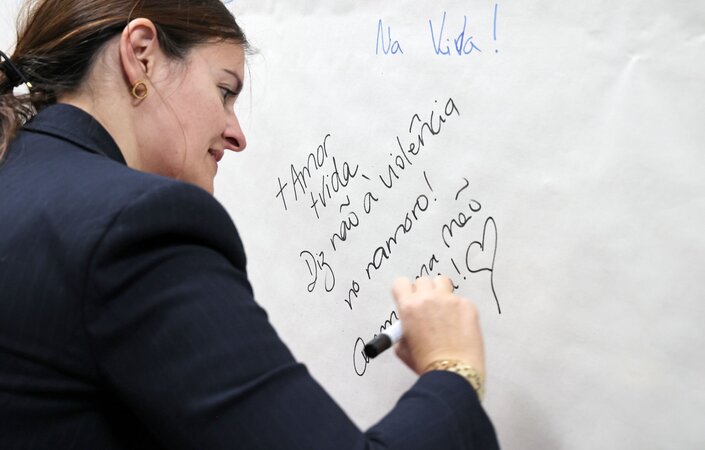 Na Vida!
+Amor
+vida
Diz não à violência
no namoro!
não